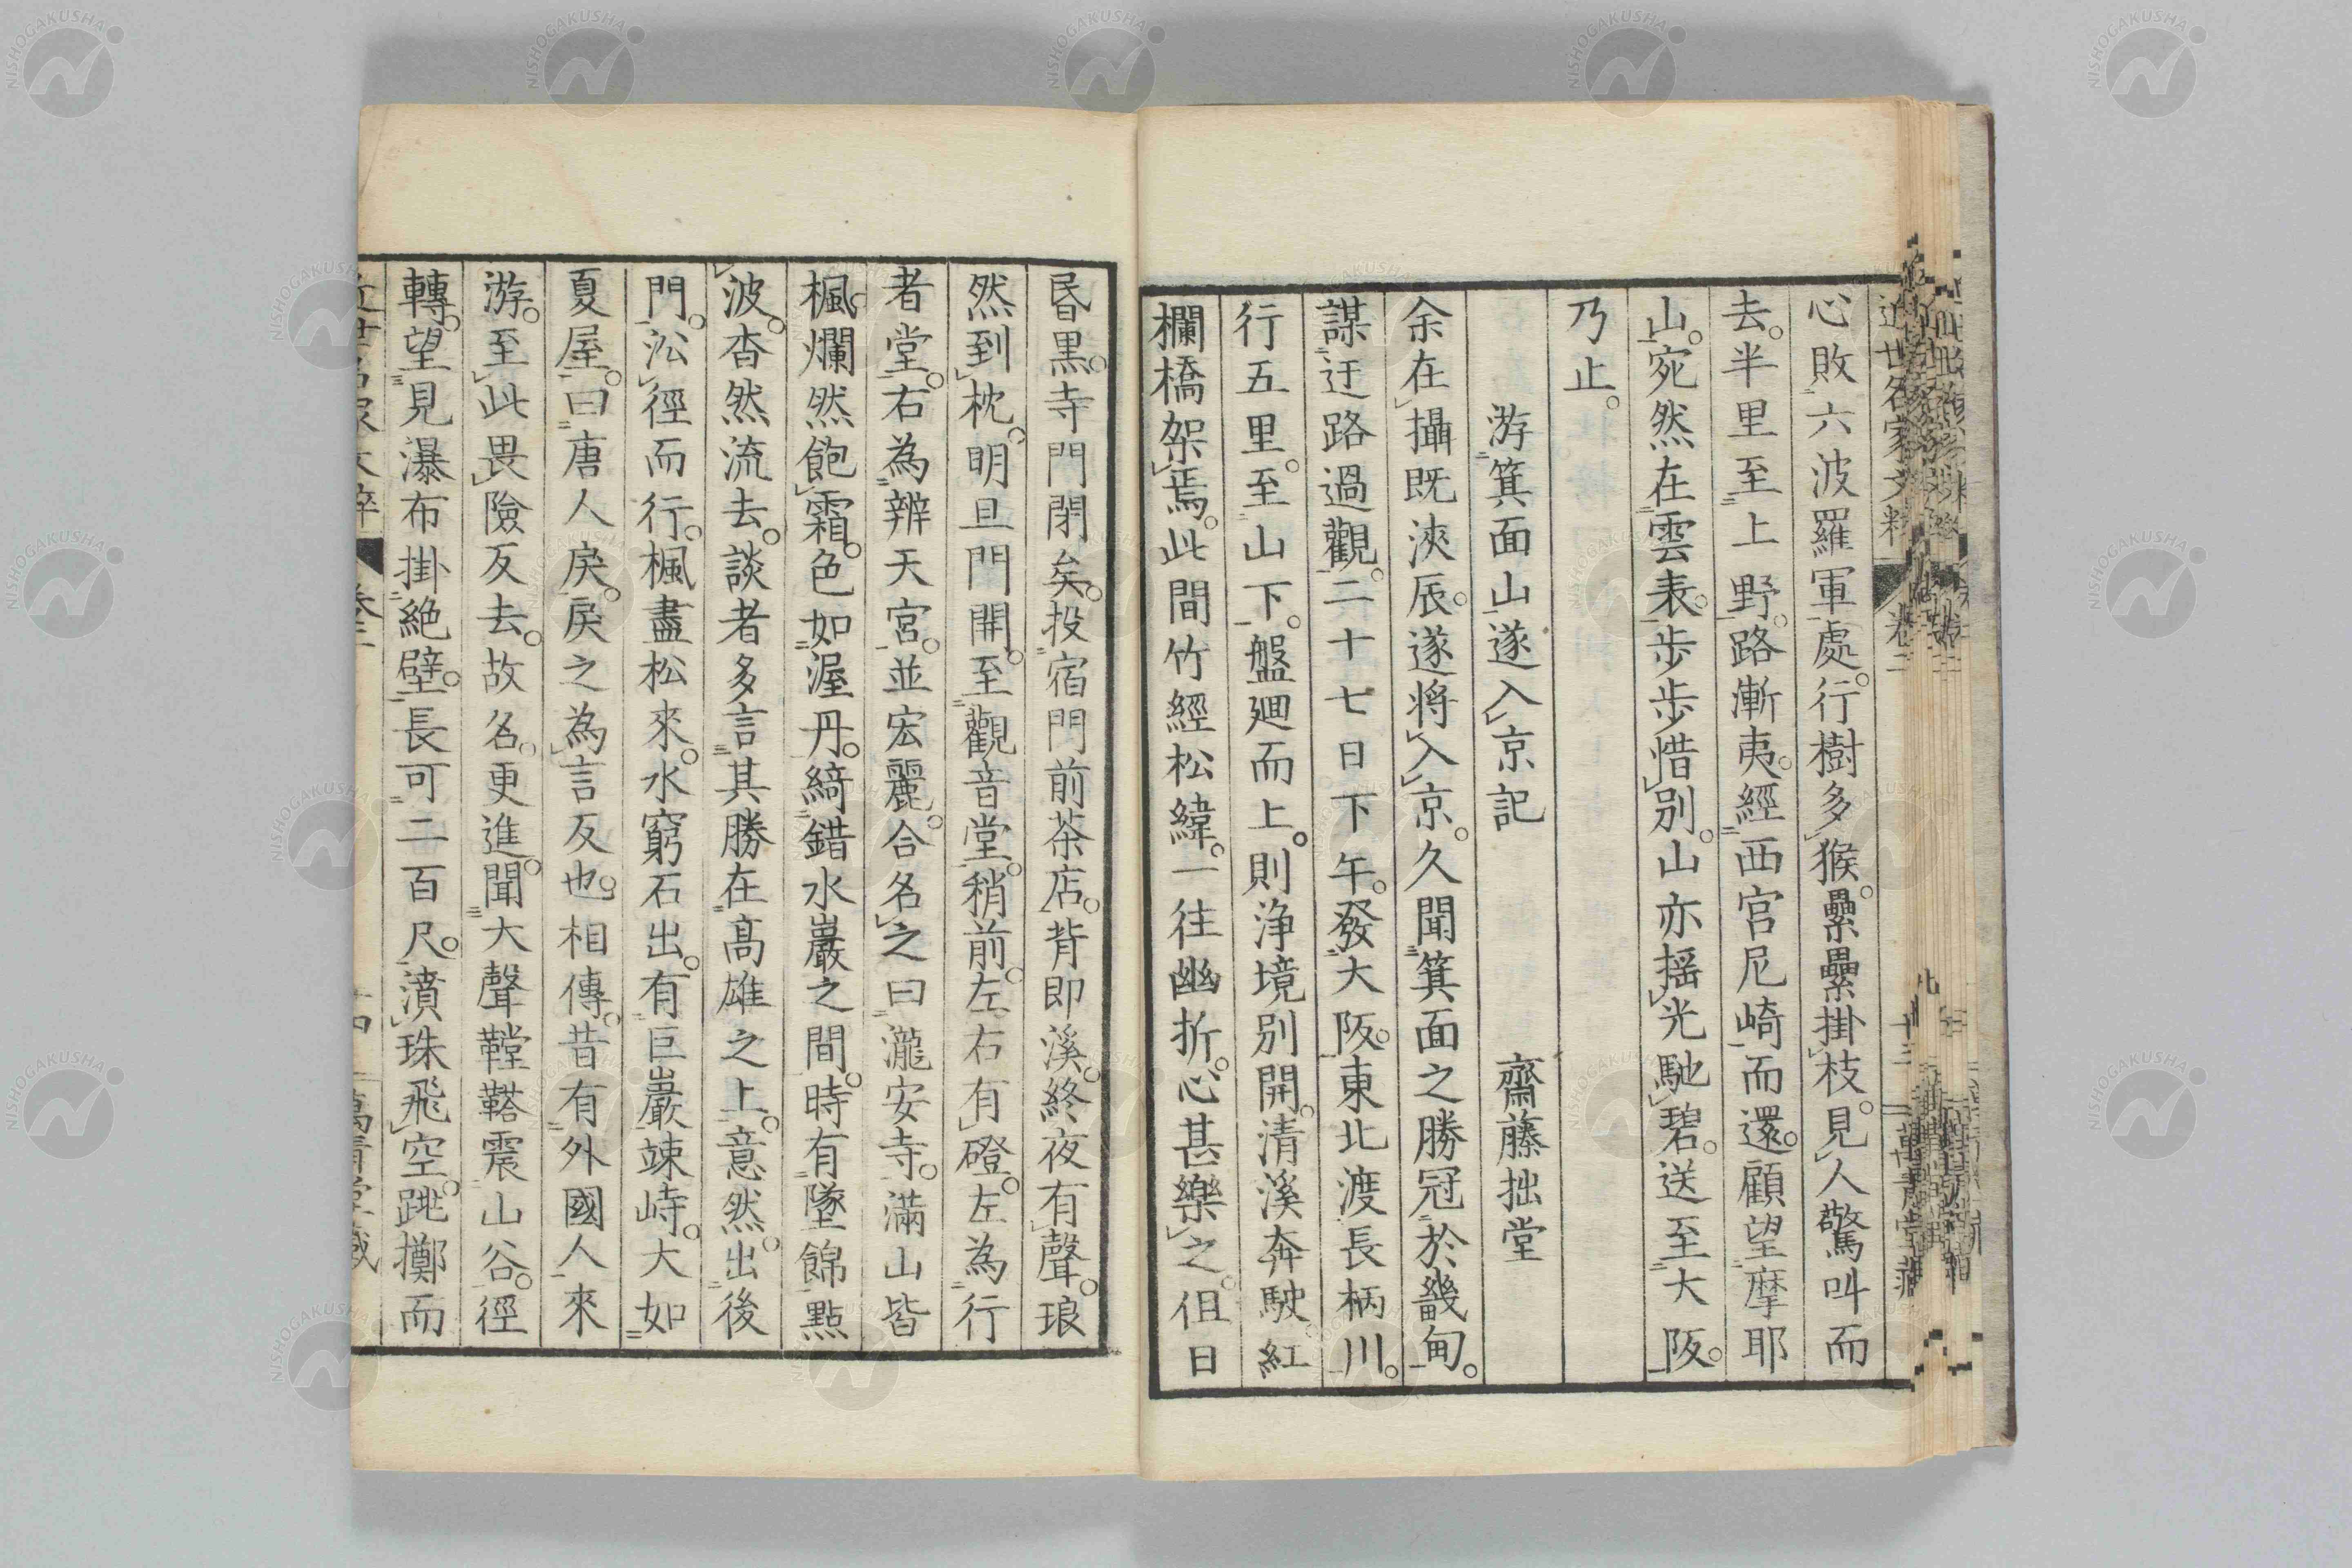 心敗六波羅軍處。行樹多猴。纍纍掛枝。見人驚叫而
去。半里至上野。路漸夷。經西宮尼崎而還。顧望摩耶
山。宛然在雲表。步步惜別。山亦搖光馳碧。送至大阪。
乃止。
游箕面山遂入京記　齋藤拙堂
余在攝既浹辰。遂將入京。久聞箕面之勝冠於畿甸。
謀迂路過觀。二十七日下午。發大阪。東北渡長柄川。
行五里。至山下。盤廻而上。則淨境別開。清溪奔駛。紅
欄橋架焉。此間竹經松緯。一往幽折。心甚樂之。但日
昏黑。寺門閉矣。投宿門前茶店。背即溪。終夜有聲。琅
然到枕。明旦門開。至觀音堂。稍前。左右有磴。左為行
者堂。右為辨天宮。並宏麗。合名之曰瀧安寺。滿山皆
楓。爛然飽霜。色如渥丹。綺錯水巖之間。時有墜錦點
波。杳然流去。談者多言其勝在高雄之上。意然。出後
門。沿徑而行。楓盡松來。水窮石出。有巨巖竦峙。大如
夏屋。曰唐人戾。戾之為言反也。相傳。昔有外國人來
游。至此畏險反去。故名。更進。聞大聲鞺鞳震山谷。徑
轉。望見瀑布掛絕壁。長可二百尺。濆珠飛空。跳擲而
近世名家文粹　卷二
NISHOGAKUSHA